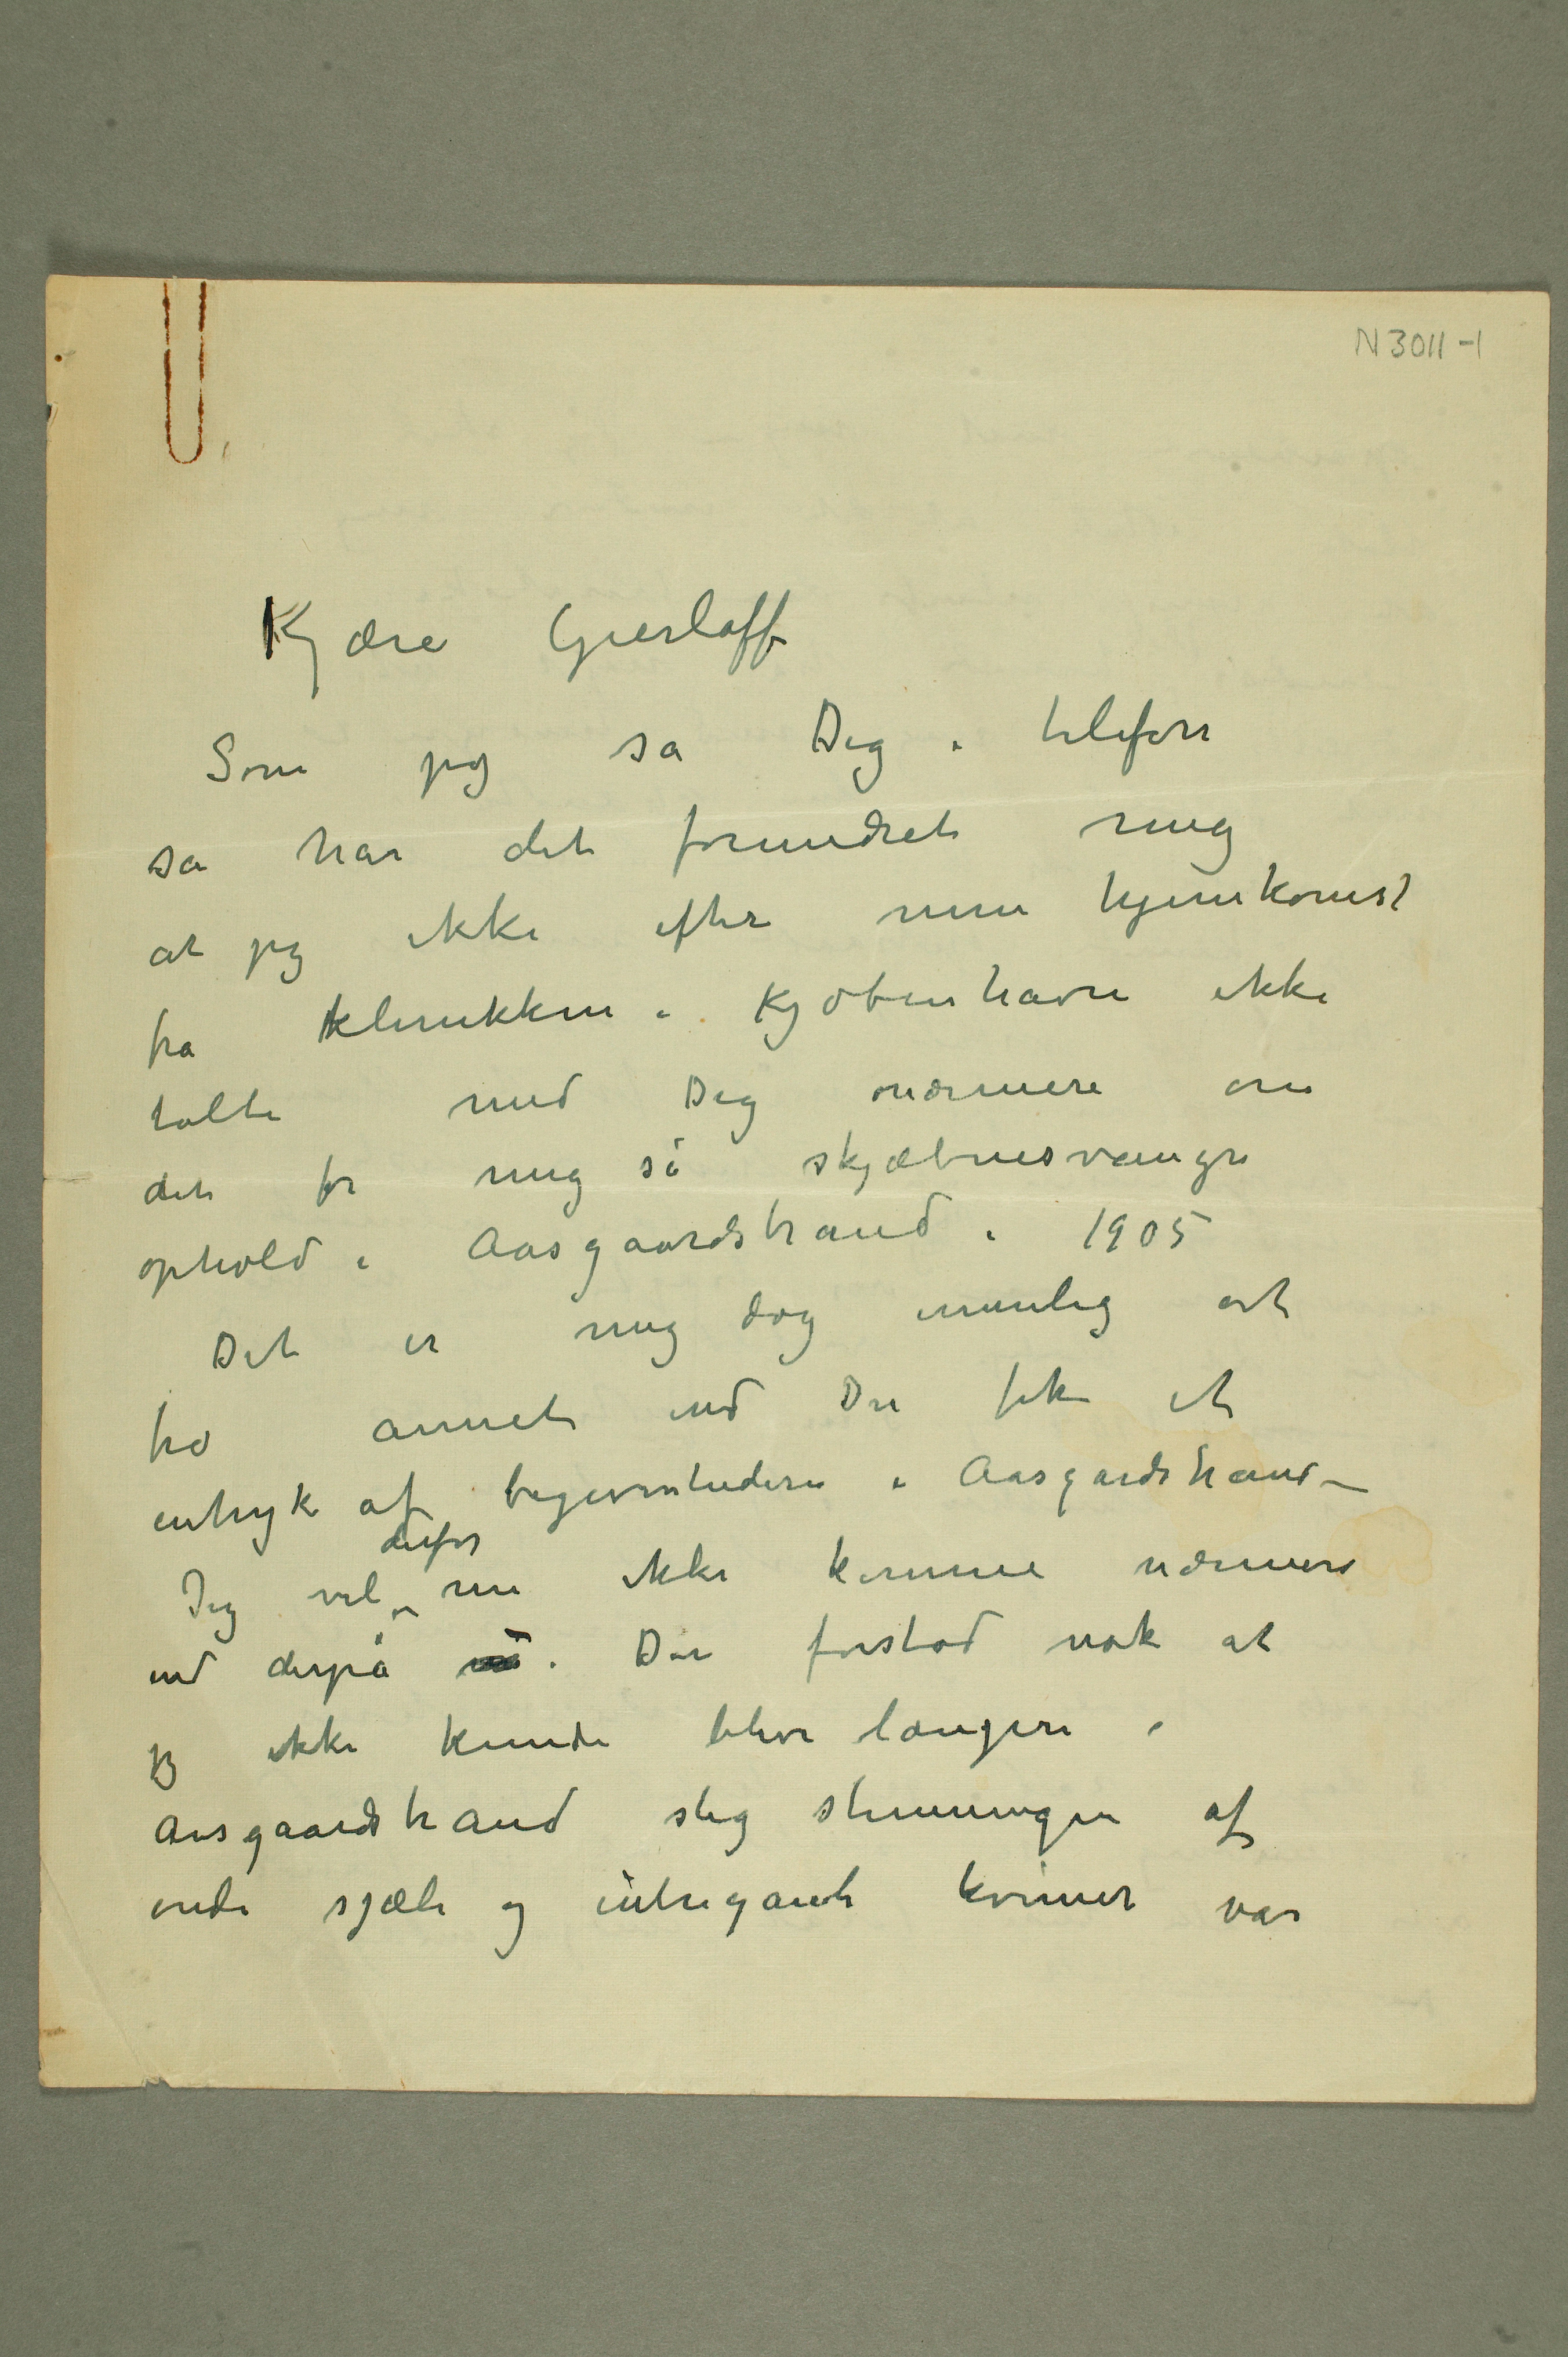 N 3011-1
Kjære Gierløff
Som jeg sa Dig i telefon
så har det forundret mig
at jeg ikke efter min hjemkomst
fra klinikken i Kjøbenhavn ikke
talte med Dig nærmere om
det for mig så skjæbnesvangre
ophold i Aasgaardstrand i 1905
Det er mig dog imidlig at
fra annet end Du fik et
intryk af begivenhederne i Aasgardstrand –
derfor
Jeg vil nu ikke komme nærmere
ind derpå . Du forstod nok at
jeg ikke kunde blive længere i
Aasgaardstrand slig stemningen af
onde sjæle og intrigante kvinner var